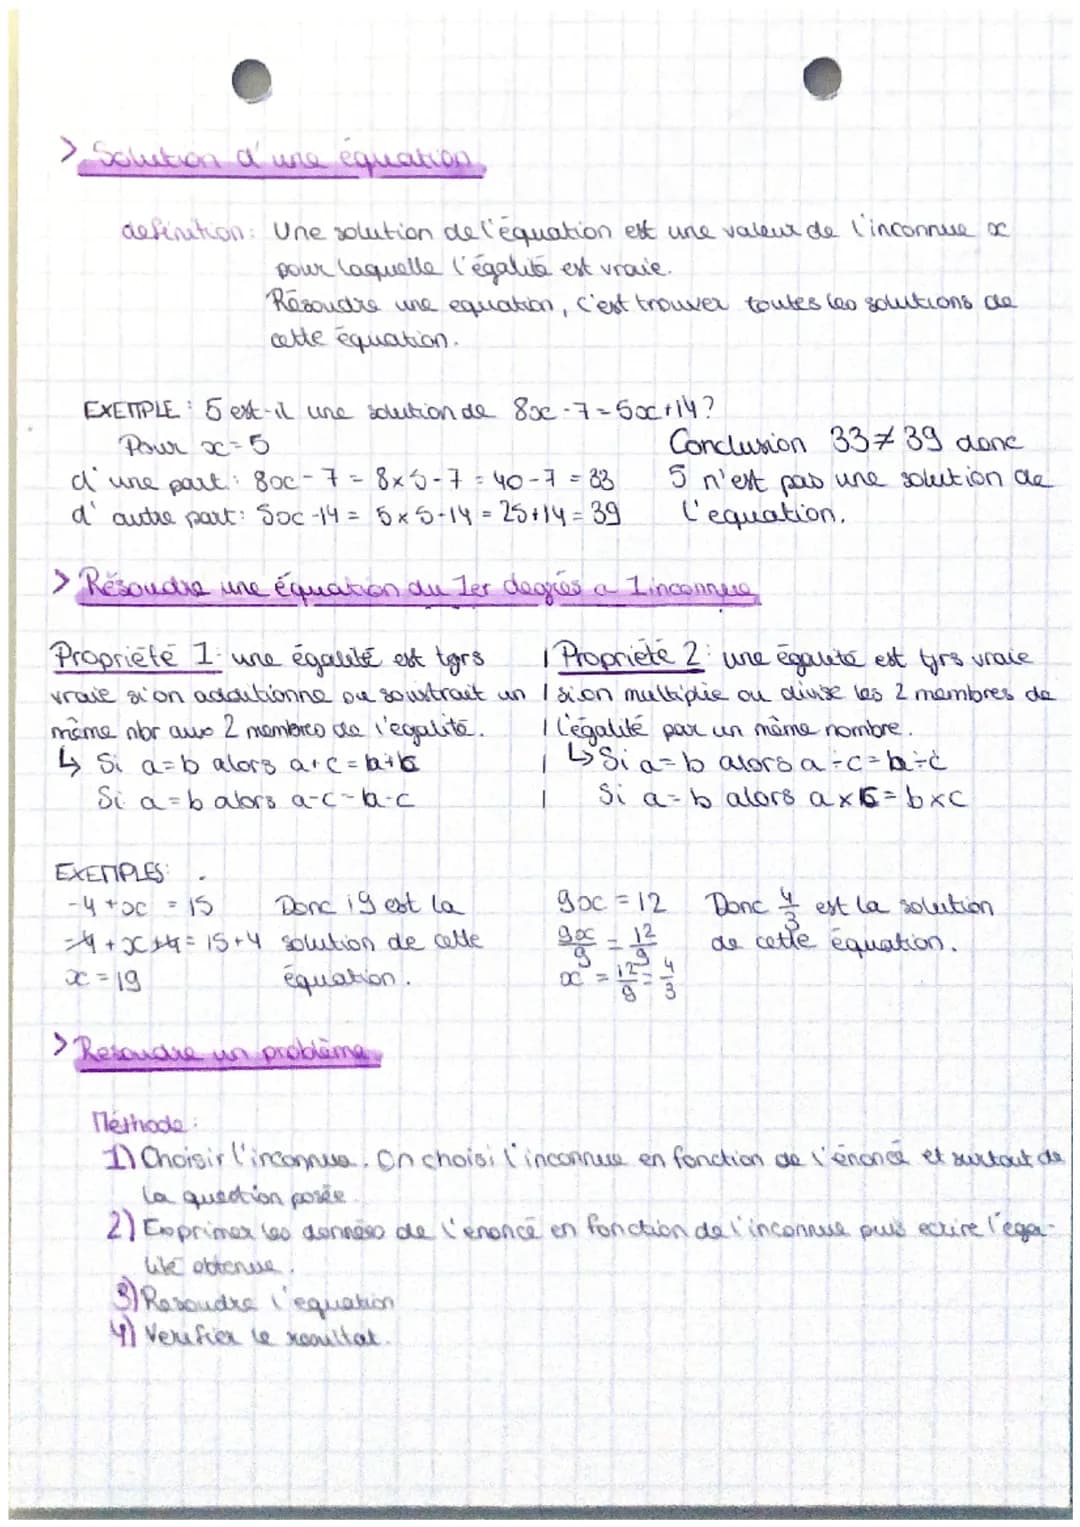 > Solution d'une équation
definition: Une solution de l'équation est une valeur de l'inconnue x
pour laquelle l'égalité est vraie.
Résoudre une equation, c'est trouver toutes les solutions de
cette équation.
EXEMPLE : 5 est-il une solution de 8x-7=5x+14?
Pour x=5
d'une part: 8x-7 = 8×5-7 = 40-7 = 33
d'autre part: 5x-14 = 5×5-14 = 25+14 = 39
Conclusion 33≠39 donc
5 n'est pas une solution de
l'equation.
> Résoudre une équation du 1er degrés a 1 inconnue
Propriété 1: une égalité est tjrs
vraie si on additionne ou soustrait un
même nbr aux 2 membres de l'egalité.
↳ Si a=b alors a+c=b+c
Si a=b alors a-c=b-c
Propriété 2: une égalité est tjrs vraie
si on multiplie ou divise les 2 membres de
l'égalité par un même nombre.
↳ Si a=b alors a÷c=b÷c
Si a=b alors a×c=b×c
EXEMPLES:
-4+x = 15
-4+x+4= 15+4
x=19
Donc 19 est la
solution de cette
équation.
9x = 12
9x/9 = 12/9
x = 12/9 = 4/3
Donc 4/3 est la solution
de cette équation.
> Resoudre un problème
Méthode:
1) Choisir l'inconnue. On choisi l'inconnue en fonction de l'énoncé et surtout de
la question posée.
2) Exprimer les données de l'enoncé en fonction de l'inconnue puis ecrire l'éga-
lité obtenue.
3) Resoudre l'equation
4) Verifier le resultat.